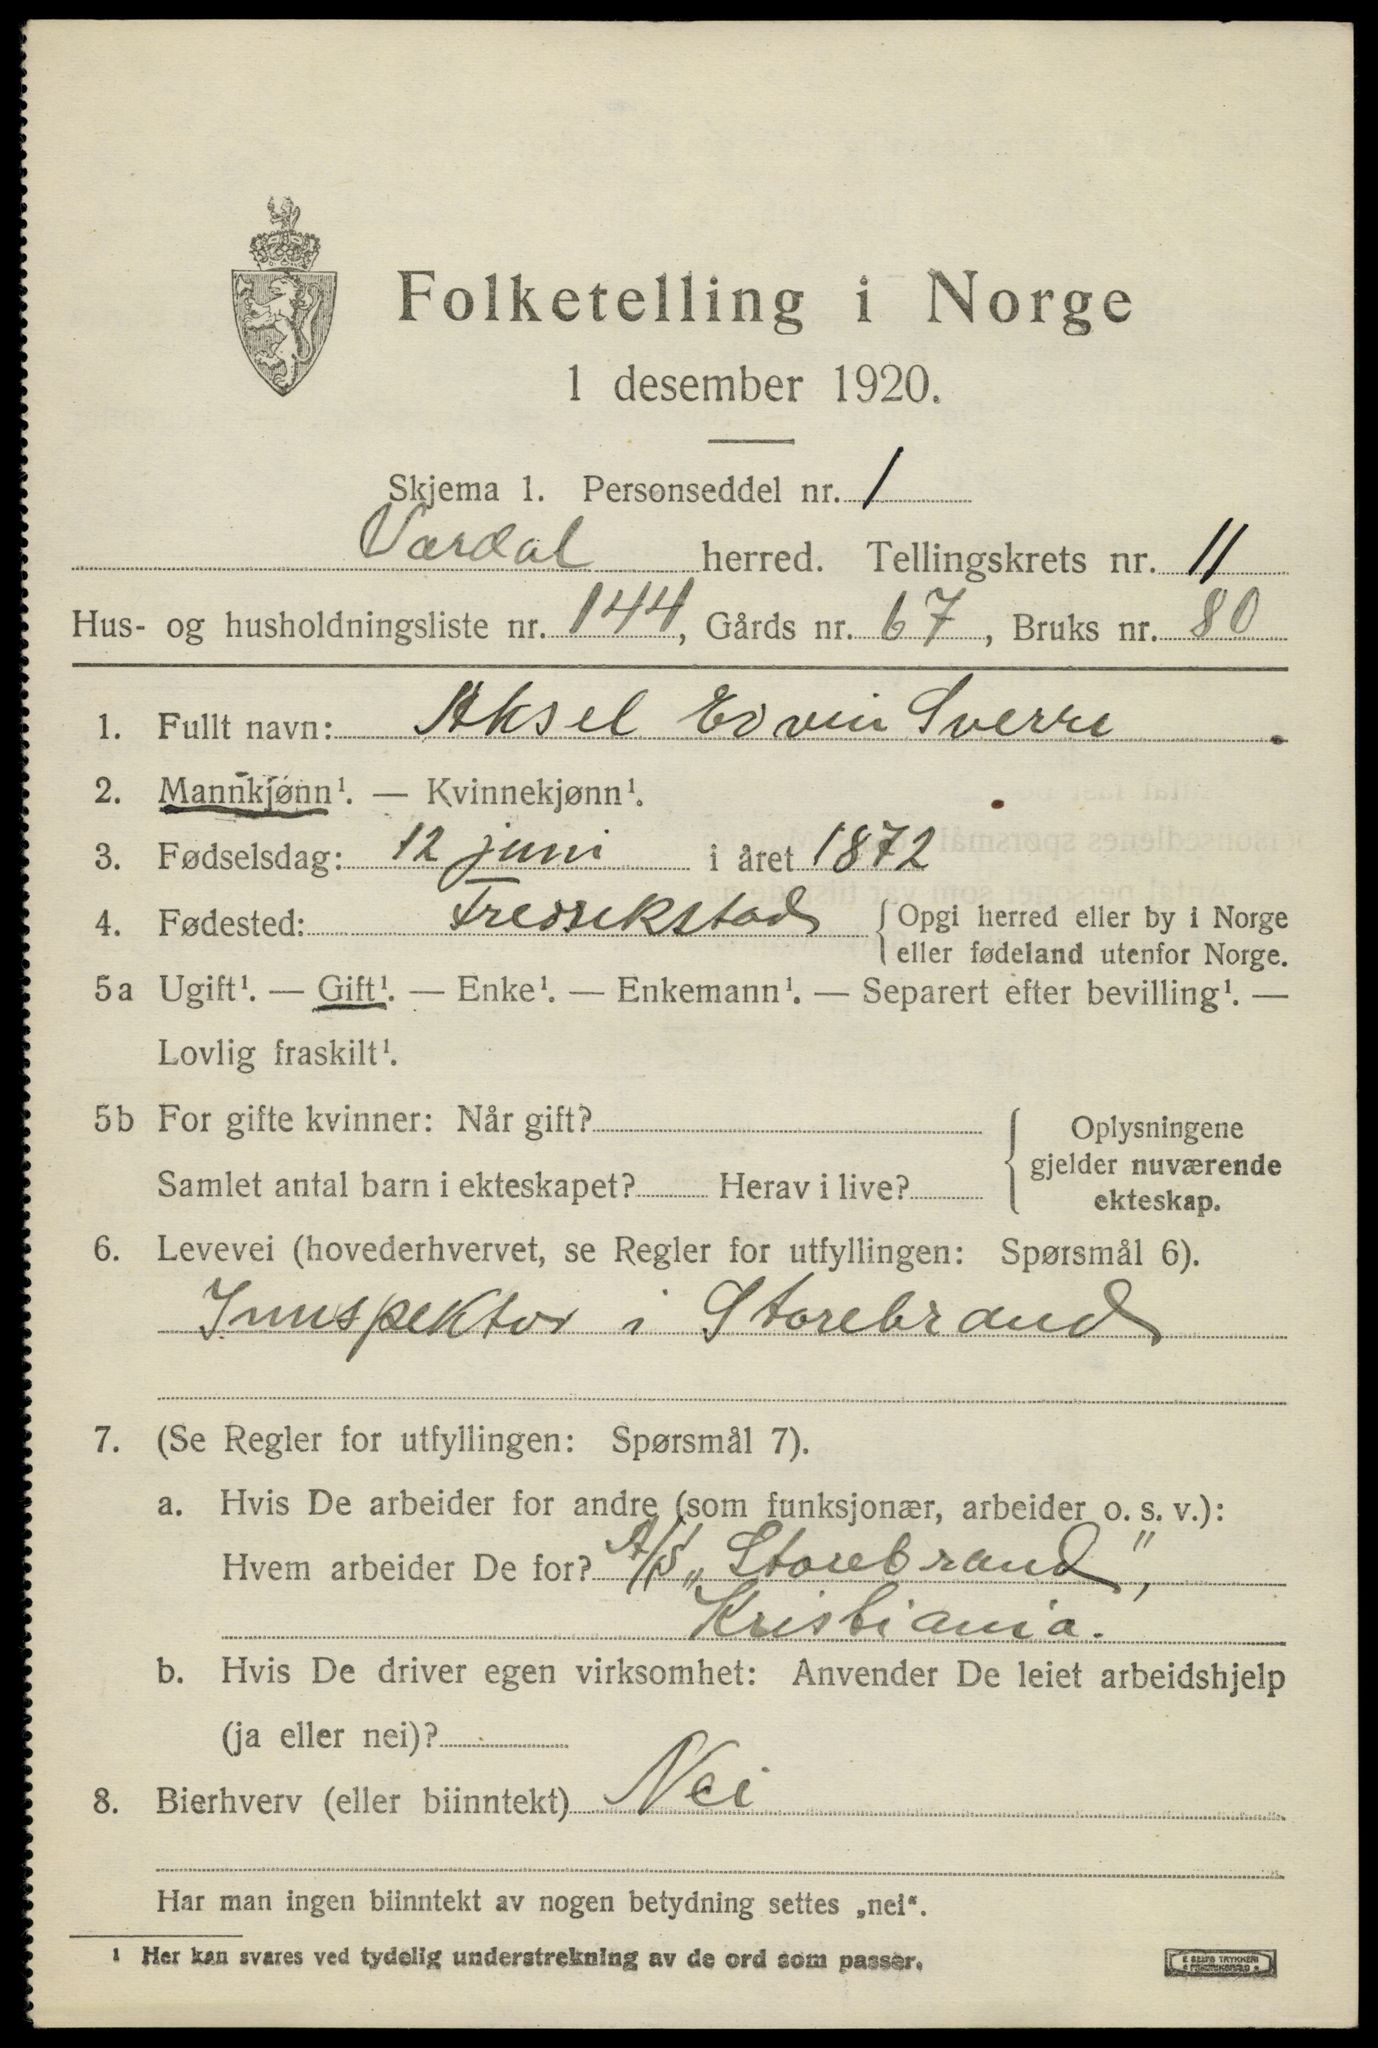 Folketelling i Norge
1 desember 1920.
Skjema 1. Personseddel nr. 1
Vardal herred. Tellingskrets nr. 11
Hus- og husholdningsliste nr. 144, Gårds nr. 67, Bruks nr. 80
1. Fullt navn: Aksel Edvin Sverre.
2. Mannkjønn¹. — Kvinnekjønn¹.
3. Fødselsdag: 12 juni i året 1872
4. Fødested: Fredrikstad { Opgi herred eller by i Norge
eller fødeland utenfor Norge.
5a Ugift¹. — Gift¹. — Enke¹. — Enkemann¹. — Separert efter bevilling¹. —
Lovlig fraskilt¹.
5b For gifte kvinner: Når gift? { Oplysningene
gjelder nuværende
Samlet antal barn i ekteskapet? Herav i live? ekteskap.
6. Levevei (hovederhvervet, se Regler for utfyllingen: Spørsmål 6).
Innspektør i Storebrand
7. (Se Regler for utfyllingen: Spørsmål 7).
a. Hvis De arbeider for andre (som funksjonær, arbeider o. s. v.):
Hvem arbeider De for? A/S „Storebrand",
Kristiania.
b. Hvis De driver egen virksomhet: Anvender De leiet arbeidshjelp
(ja eller nei)?
8. Bierhverv (eller biinntekt) Nei
Har man ingen biinntekt av nogen betydning settes „nei“.
¹ Her kan svares ved tydelig understrekning av de ord som passer.